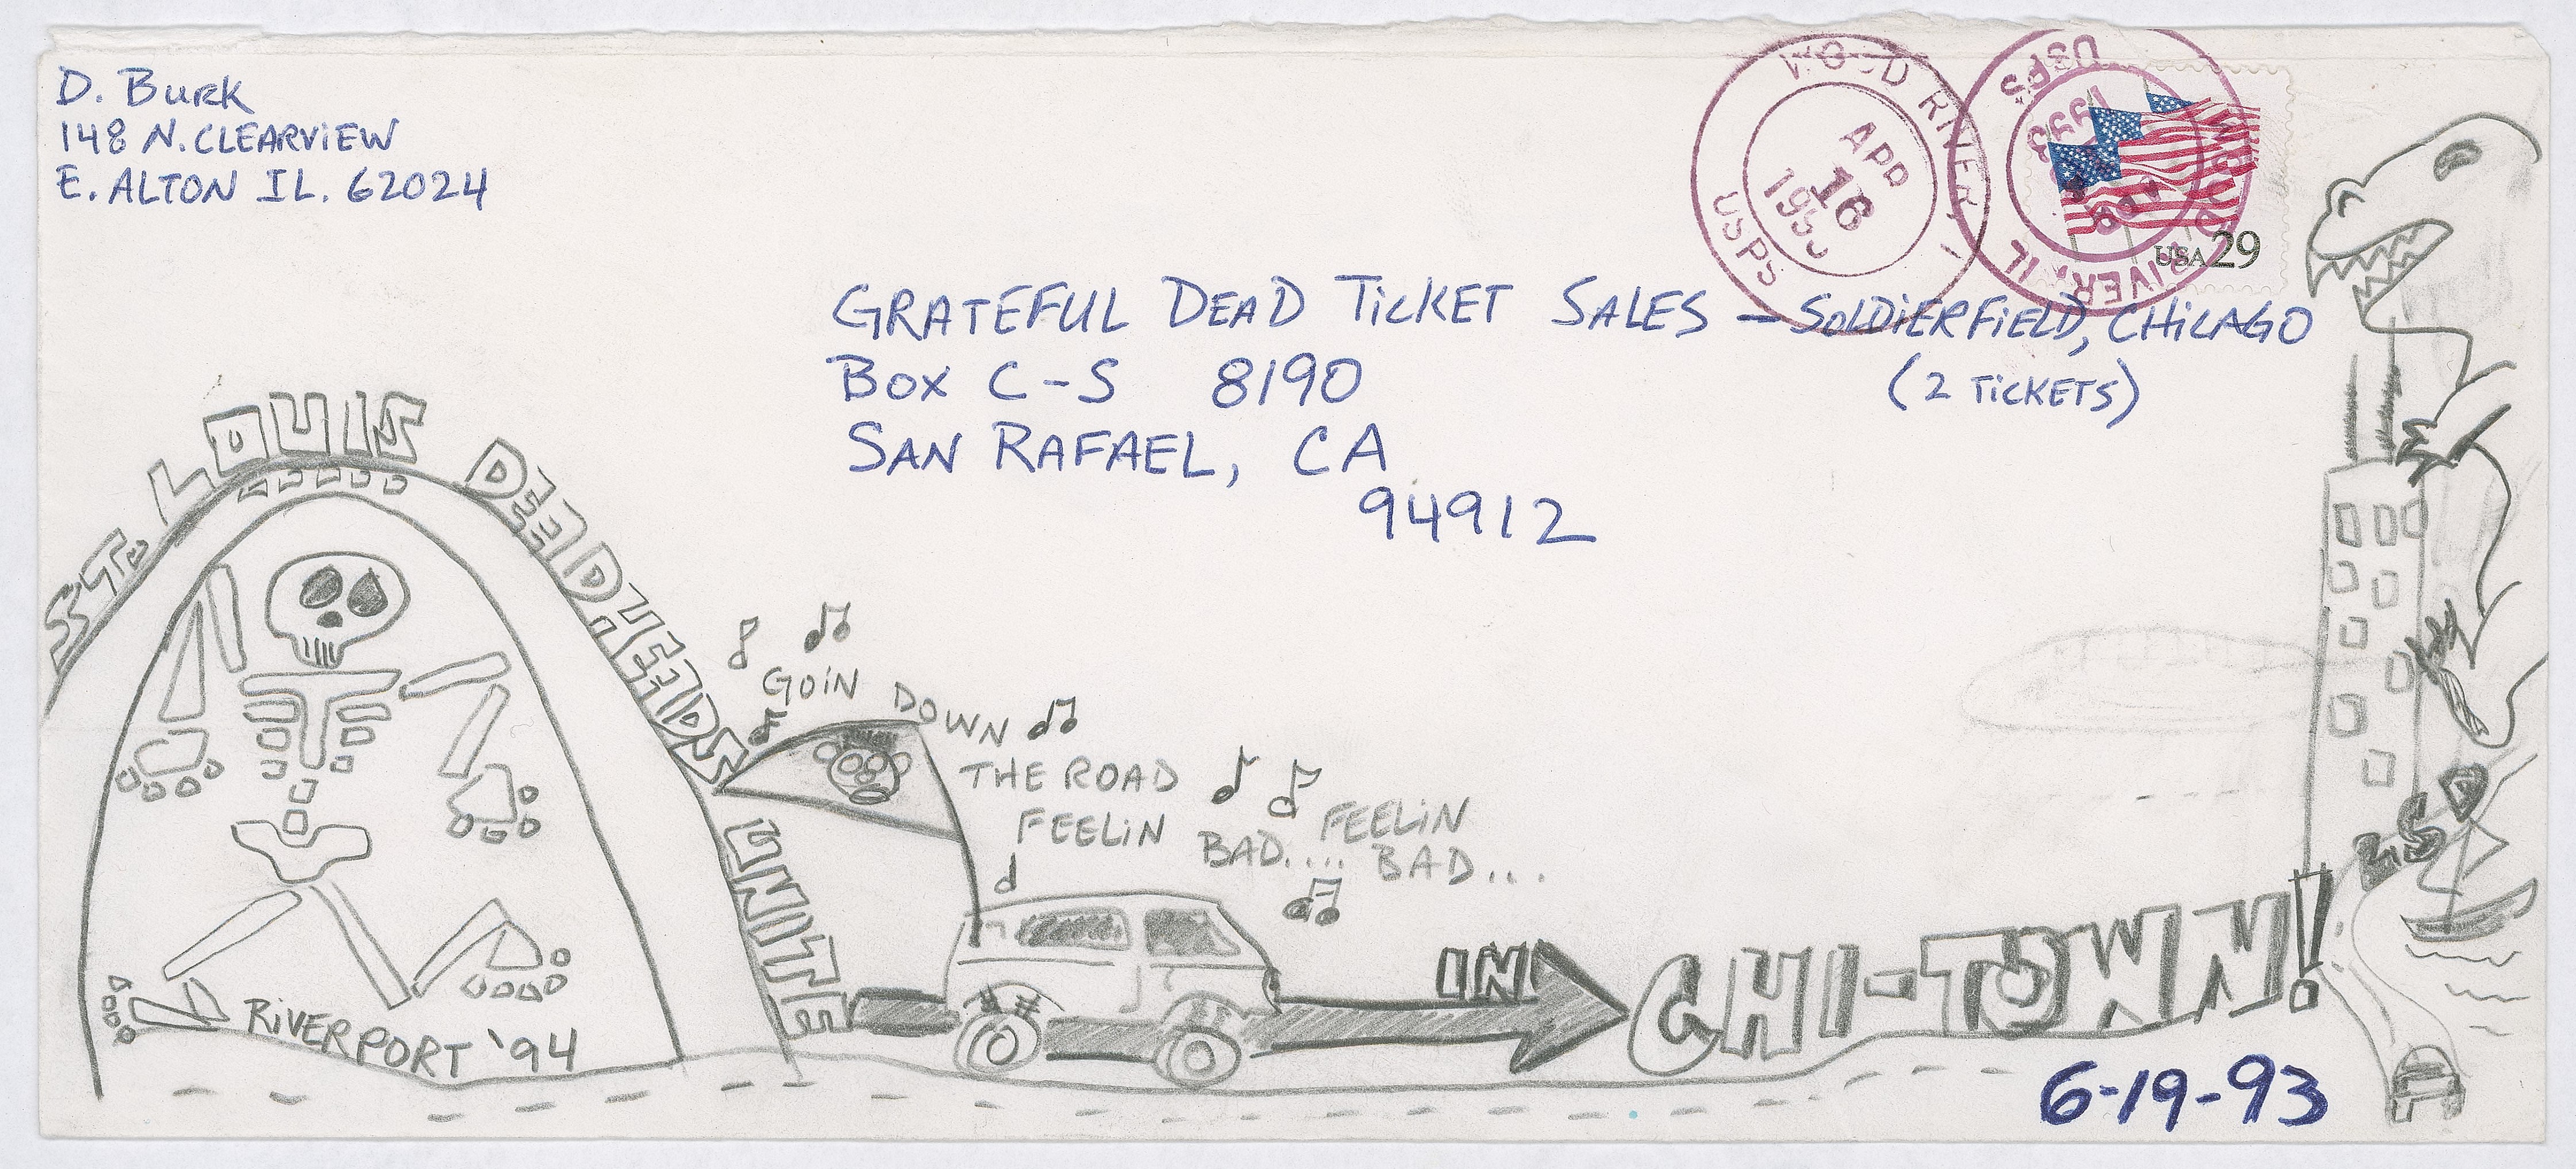 D. Burk
148 N. CLEARVIEW
E. ALTON IL. 62024
WOOD RIVER, I
APR
16
USPS
USPS
1993
APR
WOOD RIVER, IL
USA 29
GRATEFUL DEAD TICKET SALES – SOLDIERFIELD, CHICAGO
Box C-S 8190
(2 TICKETS)
SAN RAFAEL, CA
94912
ST. LOUIS DEADHEADS UNITE
GOiN DOWN
THE ROAD
FEELiN BAD.... FEELiN
BAD...
LSD
IN
CHI-TOWN!
RiVERPORT '94
6-19-93